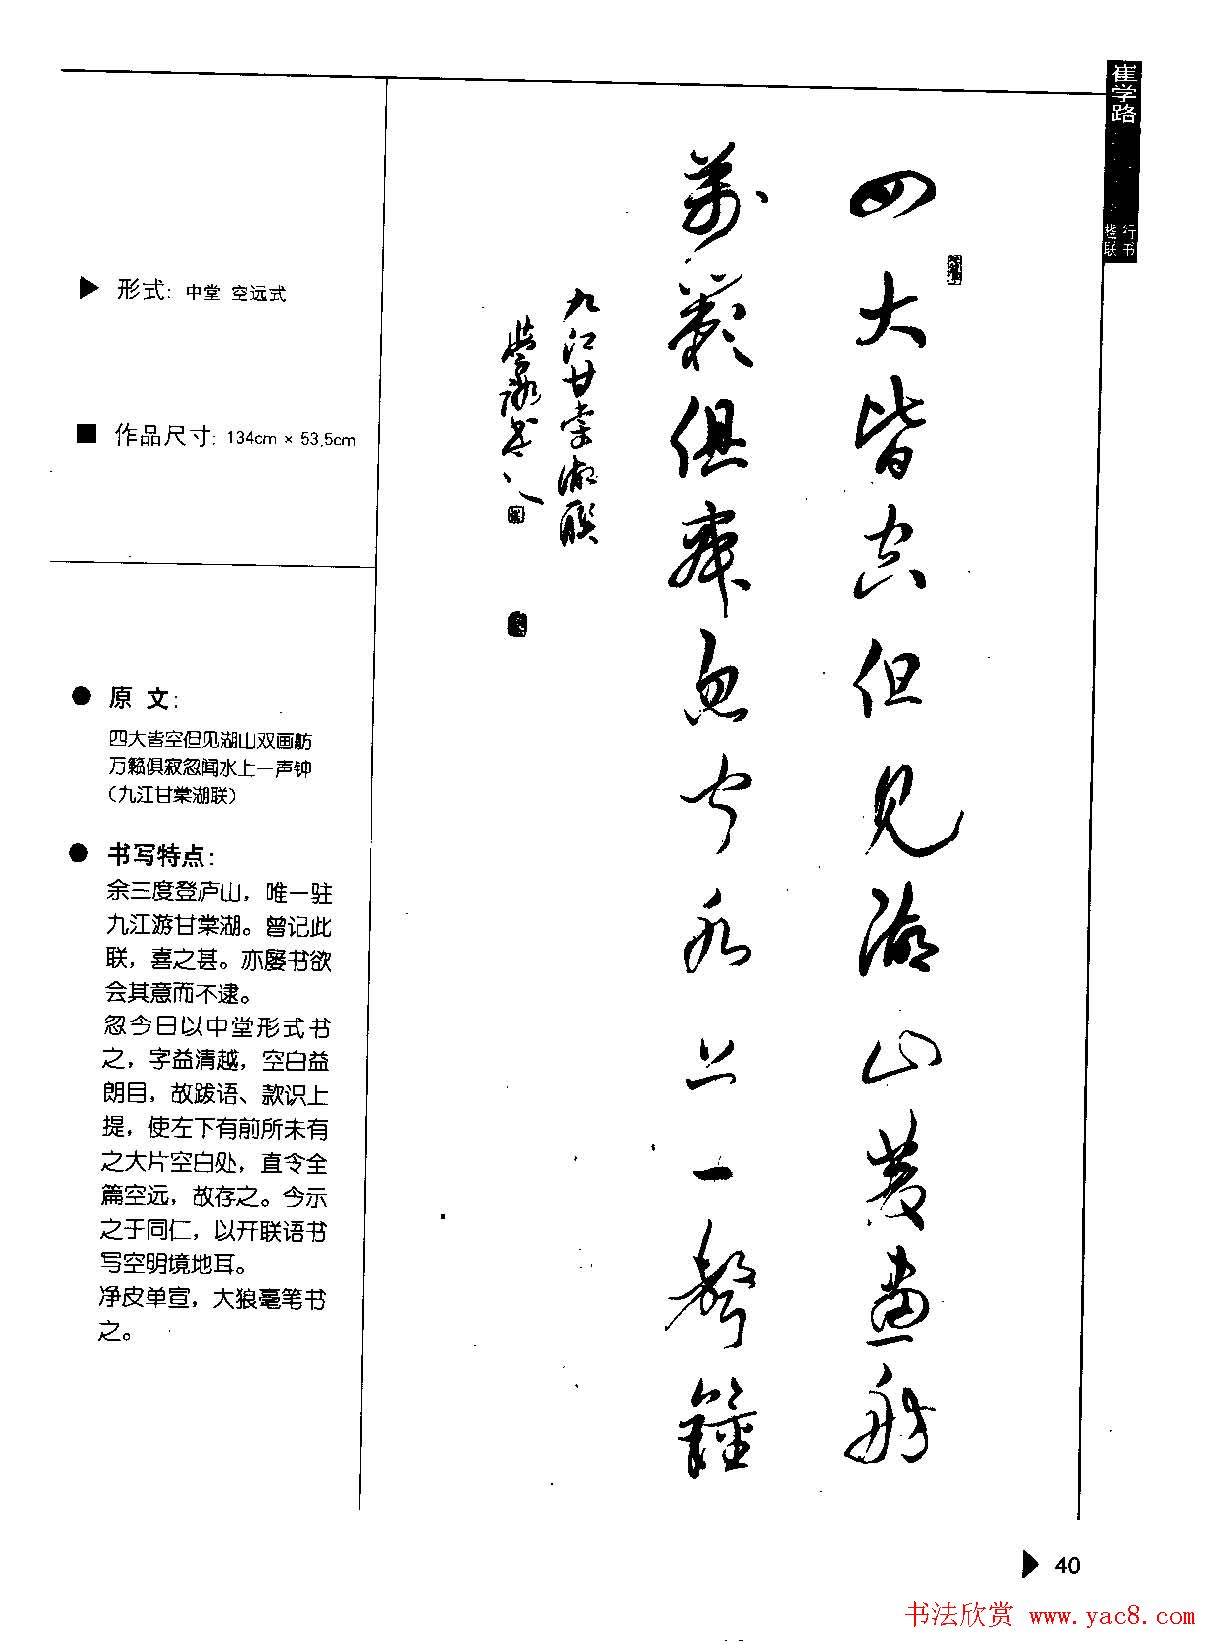 崔学路
行书
楹联
四大皆空但见湖山双画舫
万籁俱寂忽闻水上一声钟
九江甘棠湖联
学路书
▶ 形式: 中堂 空远式
■ 作品尺寸: 134cm × 53.5cm
● 原 文:
四大皆空但见湖山双画舫
万籁俱寂忽闻水上一声钟
(九江甘棠湖联)
● 书写特点:
余三度登庐山，唯一驻
九江游甘棠湖。曾记此
联，喜之甚。亦屡书欲
会其意而不逮。
忽今日以中堂形式书
之，字益清越，空白益
朗目，故跋语、款识上
提，使左下有前所未有
之大片空白处，直令全
篇空远，故存之。今示
之于同仁，以开联语书
写空明境地耳。
净皮单宣，大狼毫笔书
之。
▶ 40
书法欣赏 www.yac8.com